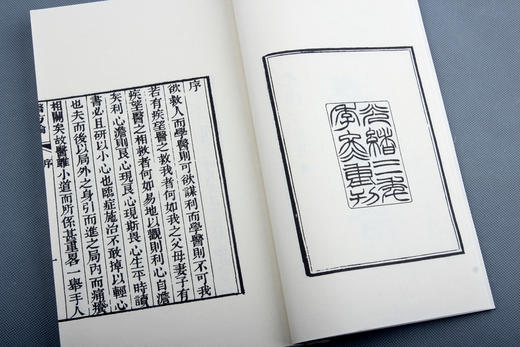 光緒
重刊
序
欲救人而學醫則可欲謀利而學醫則不可我
若有疾望醫之救我者何如我之父母妻子有
疾望醫之相救者何如易地以觀則利心自澹
矣利心澹則良心現良心現斯畏心生平時讀
書必且研以小心也臨症施治不敢掉以輕心
也夫而後以局外之身引而進之局內而痛癢
相關矣故醫雖小道而所係甚重畧一舉手人
序